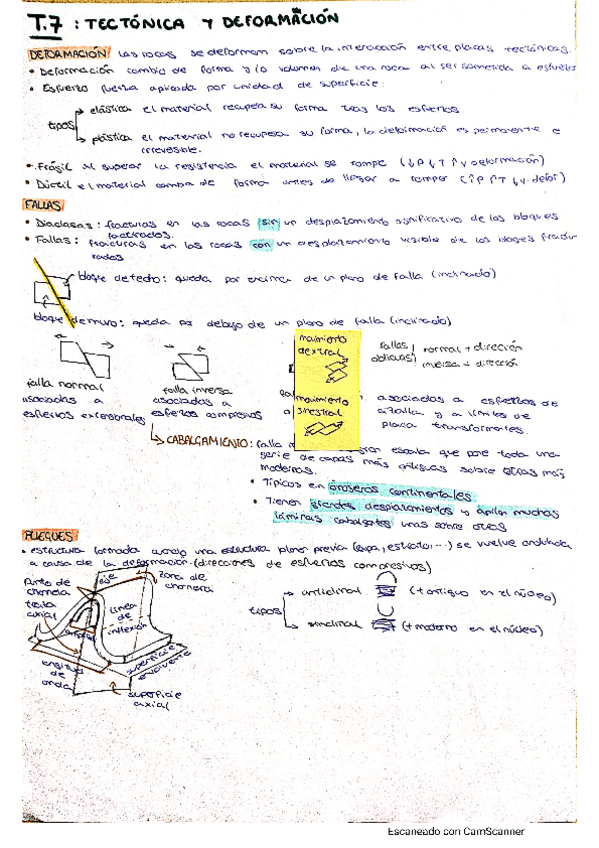 T.7: TECTÓNICA Y DEFORMACIÓN
DEFORMACIÓN las rocas se deforman sobre la interacción entre placas tectónicas.
• Deformación cambio de forma y/o volumen de una roca al ser sometida a esfuerzo
• Esfuerzo fuerza aplicada por unidad de superficie:
tipos
elástica el material recupera su forma tras los esfuerzos.
plástica el material no recupera su forma, la deformación es permanente e
irreversible.
• Frágil Al superar la resistencia el material se rompe (↓P ↓T ↑v deformación)
• Dúctil el material cambia de forma antes de llegar a romper (↑P ↑T ↓v. defor)
FALLAS
• Diaclasas: fracturas en las rocas sin un desplazamiento significativo de los bloques
fracturados.
• Fallas: fracturas en las rocas con un desplazamiento visible de los bloques fractu-
rados
bloque de techo: queda por encima de un plano de falla (inclinado)
bloque de muro: queda por debajo de un plano de falla (inclinado)
falla normal
asociadas a
esfuerzos extensionales
falla inversa
asociadas a
esfuerzos compresivos
movimiento
dextral
movimiento
sinestral
fallas
oblicuas
normal + dirección
inversa + dirección
asociadas a esfuerzos de
cizalla y a límites de
placa transformantes.
CABALGAMIENTO: falla gran escala que pone toda una
serie de capas más antiguas sobre otras más
modernas.
• Típicos en orógenos continentales
• Tienen grandes desplazamientos y apilan muchas
láminas cabalgantes unas sobre otras
PLIEGUES
• estructura formada cuando una estructura planar previa (capa, estrato, ...) se vuelve ondulada
a causa de la deformación. (direcciones de esfuerzos compresivos)
Punto de
charnela
eje
zona de
charnela
traza
axial
línea
de
inflexión
longitud
de
onda
superficie
envolvente
superficie
axial
tipos
anticlinal (+ antiguo en el núcleo)
sinclinal (+ moderno en el núcleo)
Escaneado con CamScanner